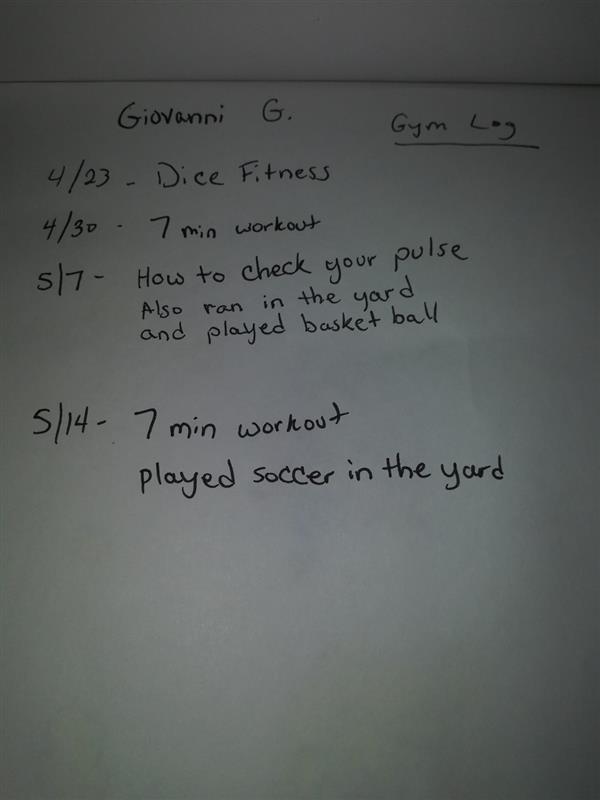 Giovanni G.
Gym Log
4/23 - Dice Fitness
4/30 - 7 min workout
5/7 - How to check your pulse
Also ran in the yard
and played basket ball
5/14 - 7 min workout
played soccer in the yard